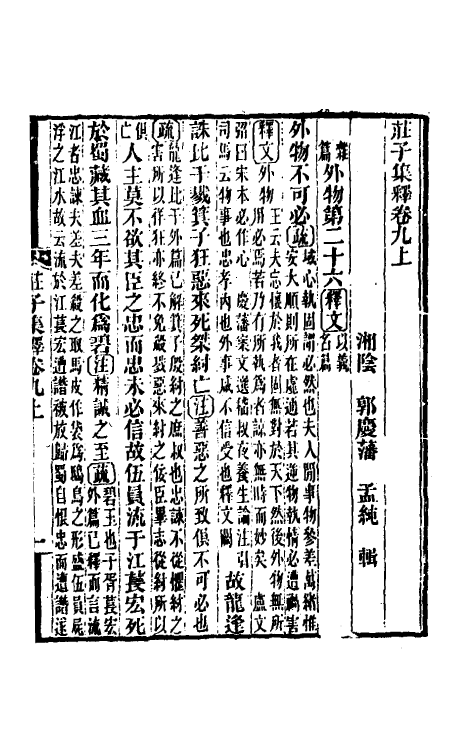 莊子集釋卷九上
湘陰 郭慶藩 孟純 輯
雜篇外物第二十六【釋文】以義名篇
外物不可必【疏】域心執固謂必然也夫人間事物參差萬緒惟安大順則所在虛通若其逆物執情必遭禍害
【釋文】外物王云夫忘懷於我者固無對於天下然後外物無所用必焉若乃有所執為者諒亦無時而妙矣 盧文
弨曰宋本必作心 慶藩案文選嵇叔夜養生論注引司馬云物事也忠孝內也外事咸不信受也釋文闕 故龍逢
誅比干戮箕子狂惡來死桀紂亡【注】善惡之所致俱不可必也
【疏】龍逢比干外篇已解箕子殷紂之庶叔也忠諫不從懼紂之害所以佯狂亦終不免殺戮惡來紂之佞臣畢志從紂所以
俱亡 人主莫不欲其臣之忠而忠未必信故伍員流于江萇宏死
於蜀藏其血三年而化為碧【注】精誠之至【疏】碧玉也子胥萇宏外篇已釋而言流
江者忠諫夫差夫差殺之取馬皮作袋為鴟鳥之形盛伍員屍浮之江水故云流於江萇宏遭譖被放歸蜀自恨忠而遭譖遂
莊子集釋卷九上 一